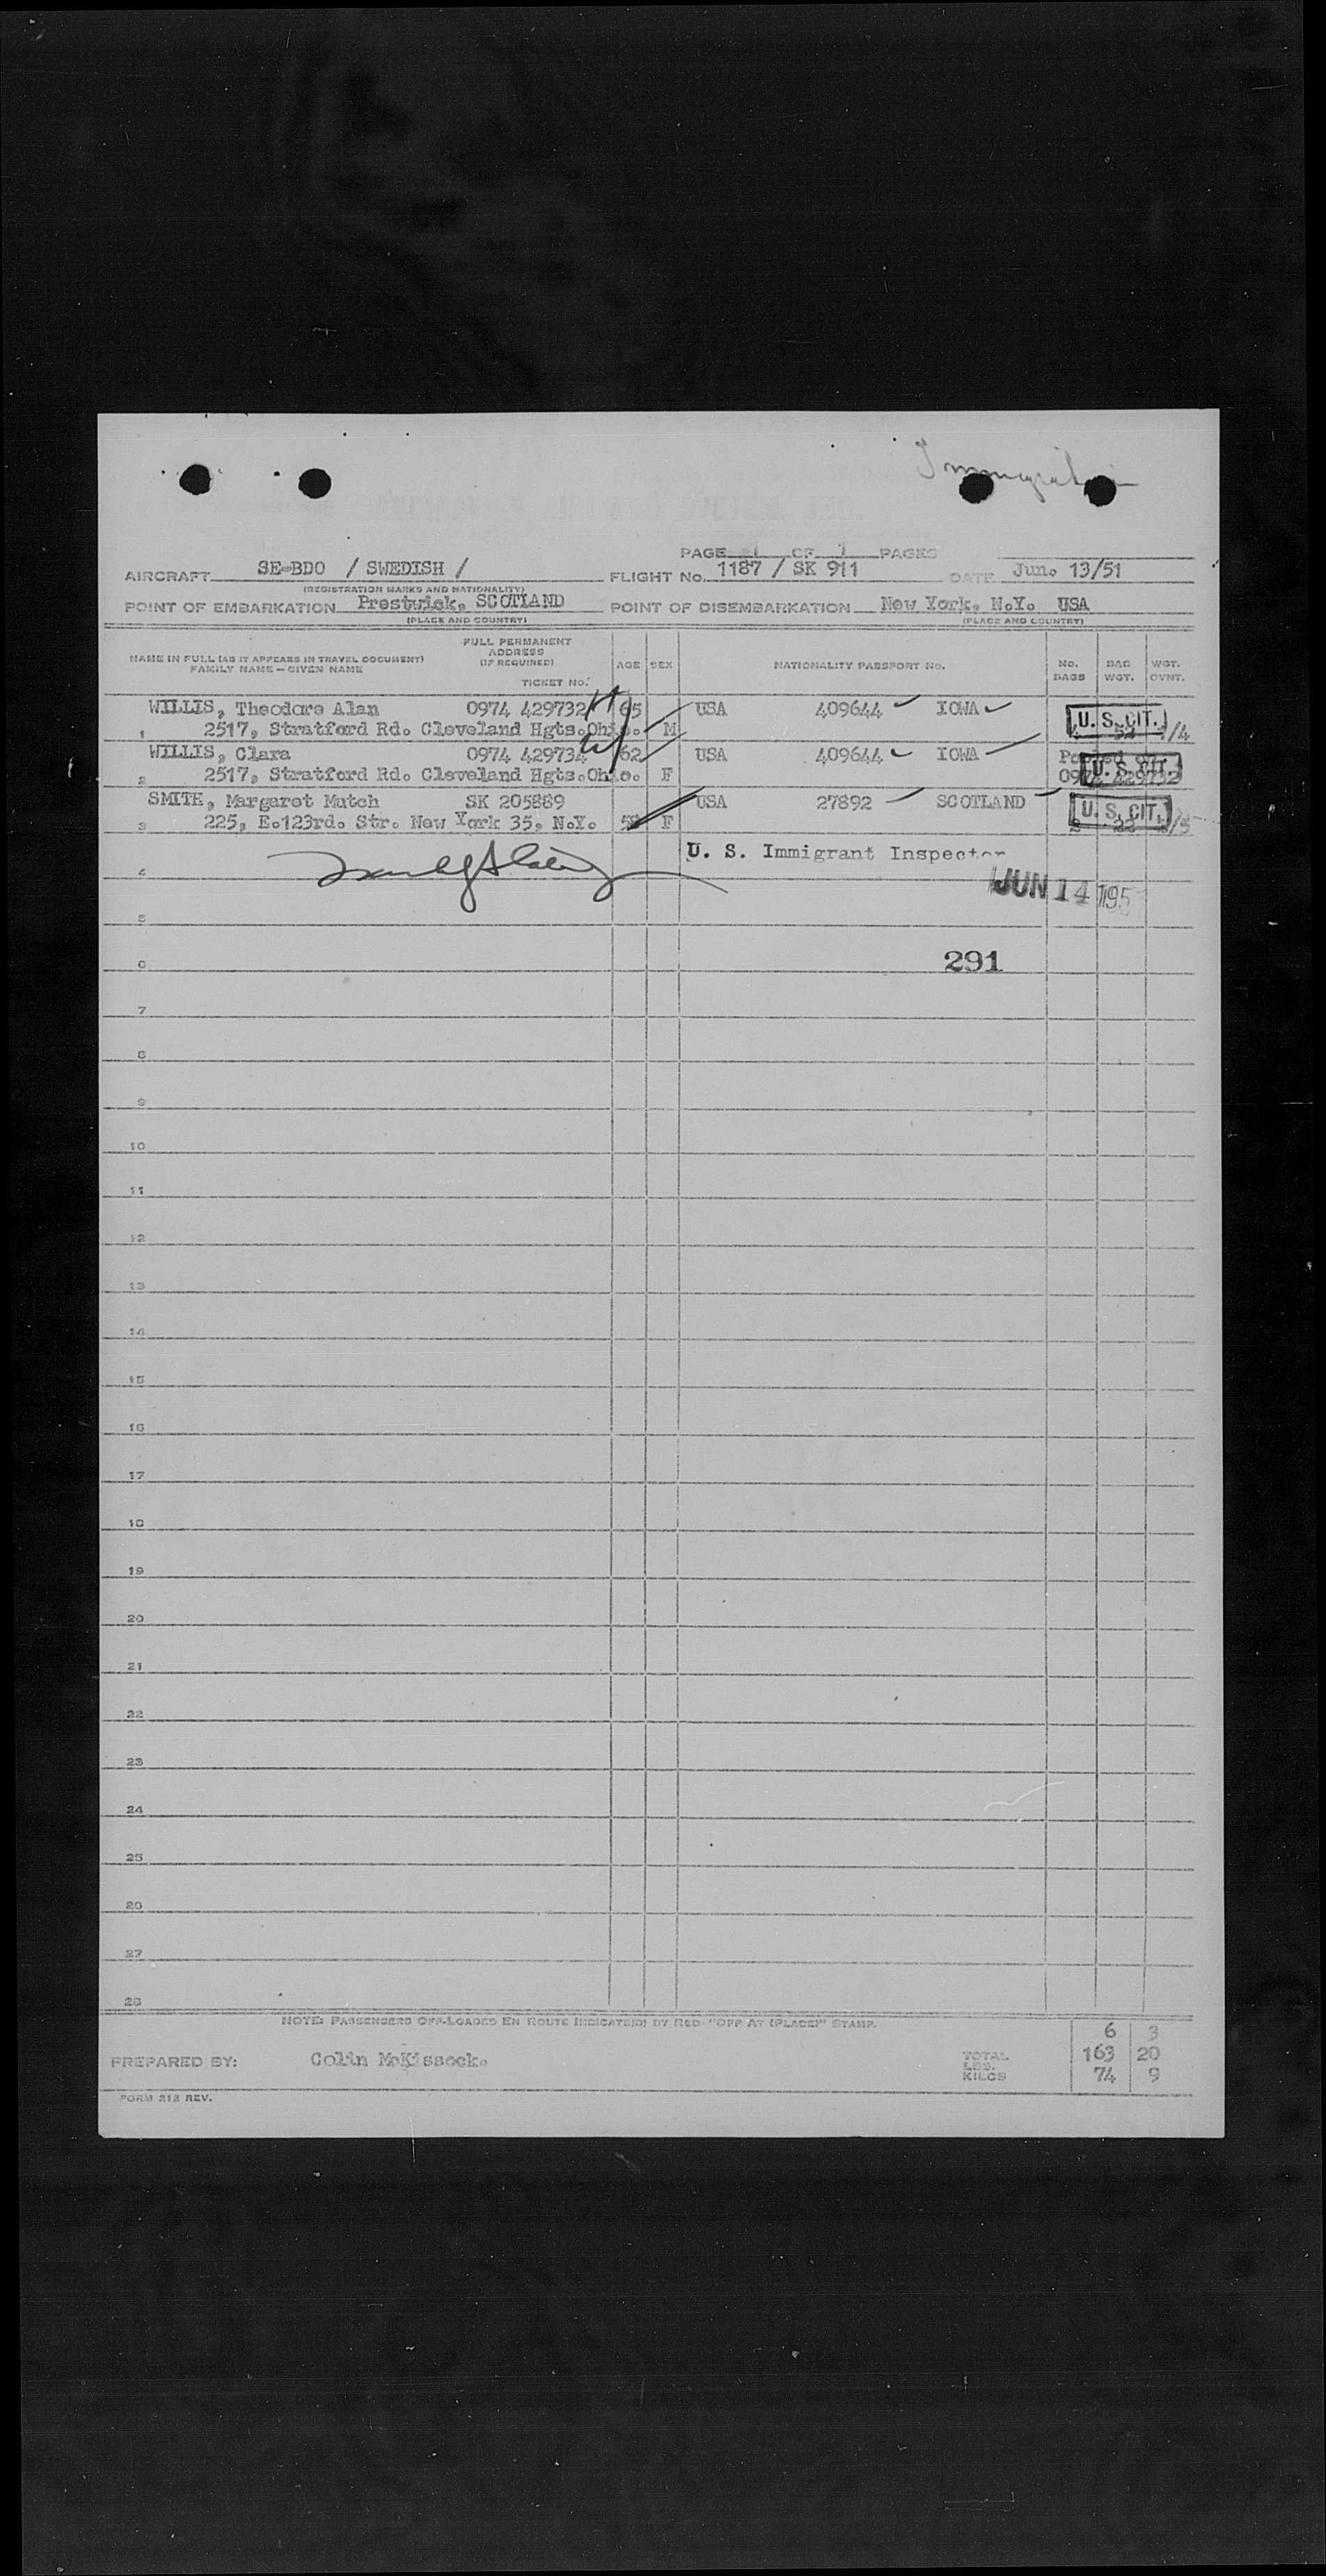 Immigration
PAGE 1 OF 1 PAGES
AIRCRAFT SE-BDO / SWEDISH / FLIGHT No. 1187 / SK 911 DATE Jun. 13/51
(REGISTRATION MARKS AND NATIONALITY)
POINT OF EMBARKATION Prestwick, SCOTLAND POINT OF DISEMBARKATION New York, N.Y. USA
(PLACE AND COUNTRY) (PLACE AND COUNTRY)
NAME IN FULL (AS IT APPEARS IN TRAVEL DOCUMENT) FAMILY NAME - GIVEN NAME FULL PERMANENT ADDRESS (IF REQUIRED) TICKET NO. AGE SEX NATIONALITY PASSPORT NO. NO. BAGS BAG WGT. WGT. OVNT.
WILLIS, Theodore Alan 0974 429732 65 USA 409644 IOWA U. S. CIT.
1 2517, Stratford Rd. Cleveland Hgts. Ohio. M 1/4
WILLIS, Clara 0974 429734 62 USA 409644 IOWA U. S. CIT.
2 2517, Stratford Rd. Cleveland Hgts. Ohio. F 0974 429732
SMITH, Margaret Mutch SK 205889 USA 27892 SCOTLAND U. S. CIT.
3 225, E.123rd. Str. New York 35, N.Y. F 2 22 /5
U. S. Immigrant Inspector
4 JUN 14 195
5
6 291
7
8
9
10
11
12
13
14
15
16
17
18
19
20
21
22
23
24
25
26
27
28
NOTE: PASSENGERS OFF-LOADED EN ROUTE INDICATE(D) BY RED "OFF AT (PLACE)" STAMP.
6 3
PREPARED BY: Colin McKissock. TOTAL LBS. 163 20
KILOS 74 9
FORM 212 REV.